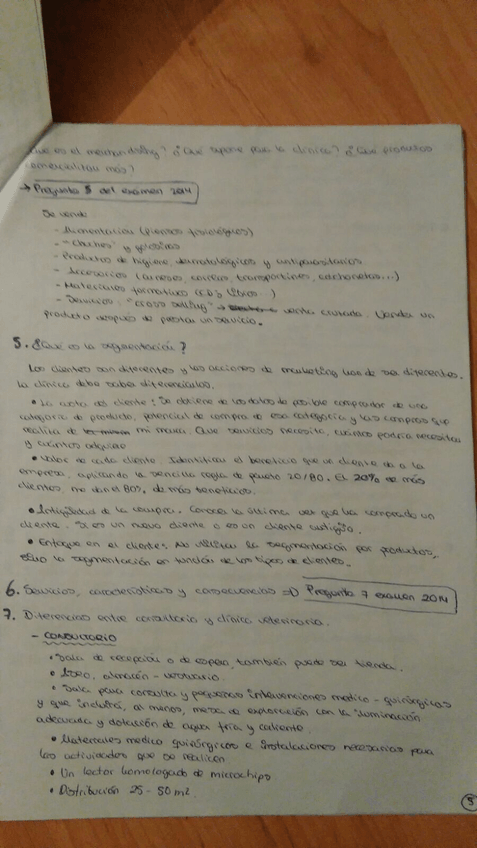 Que es el merchandising? ¿Qué supone para la clínica? ¿Que productos
comercializan más?
→ Pregunta 8 del examen 2014
Se vende
- Alimentación (piensos fisiológicos)
- "Chuches" y golosinas
- Productos de higiene, dermatológicos y antiparasitarios
- Accesorios (arneses, correas, transportines, colchonetas...)
- Materiales formativos (CD's, libros...)
- Servicios: "cross selling" → venta cruzada. Venda un
producto después de prestar un servicio.
5. ¿Qué es la segmentación?
Los clientes son diferentes y las acciones de marketing han de ser diferentes.
La clínica debe saber diferenciarlos.
• La cuota del cliente: Se obtiene de los datos de posible comprador de una
categoria de producto, potencial de compra de esa categoría y las compras que
realiza de mi marca. Que servicios necesita, cuantos podria necesitar
y cuántos adquiere
• Valor de cada cliente. Identificar el beneficio que un cliente da a la
empresa, aplicando la sencilla regla de pareto 20/80. El 20% de más
clientes, me dan el 80% de más beneficios.
• Antigüedad de la compra. Conocer la última vez que ha comprado un
cliente. Si es un nuevo cliente o es un cliente antiguo.
• Enfoque en el cliente: No utilizar la segmentación por productos,
sino la segmentación en función de los tipos de clientes.
6. Servicios, características y consecuencias => Pregunta 7 examen 2014
7. Diferencias entre consultorio y clínica veterinaria.
- CONSULTORIO
• Sala de recepción o de espera, también puede ser tienda.
• Aseo, almacén - vestuario.
• Sala para consulta y pequeñas intervenciones medico - quirúrgicas
y que incluirá, al menos, mesa de exploración con la iluminación
adecuada y dotación de agua fria y caliente.
• Materiales medico quirúrgicos e instalaciones necesarias para
las actividades que se realicen
• Un lector homologado de microchips
• Distribución 25 - 50 m²
5